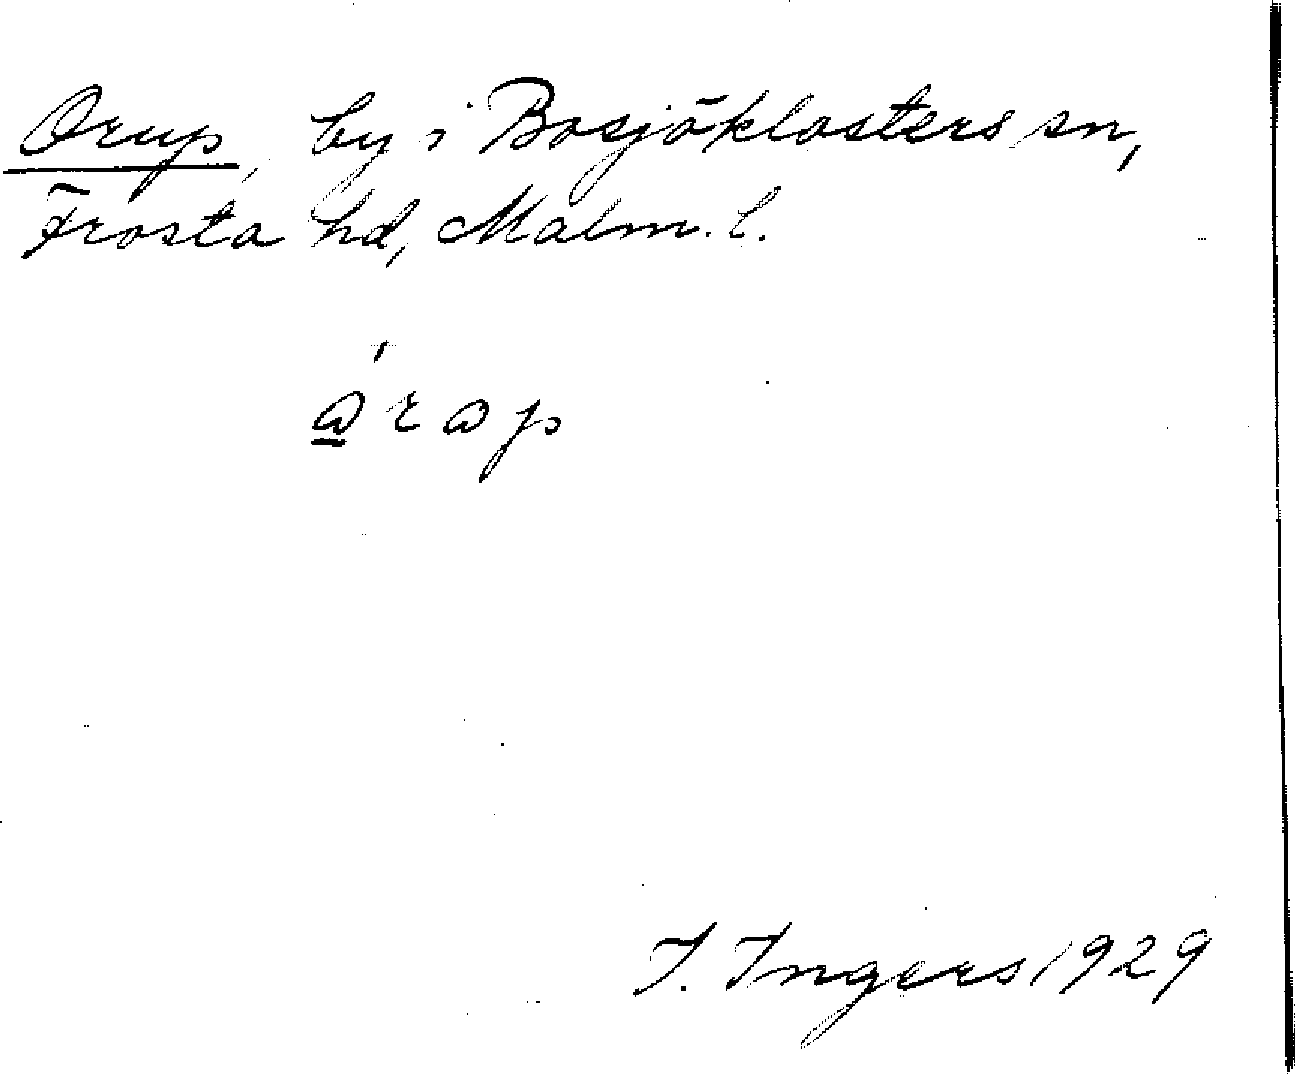 Orup, by i Bosjöklosters sn,
Frosta hd, Malm. l.
I. Ingers 1929